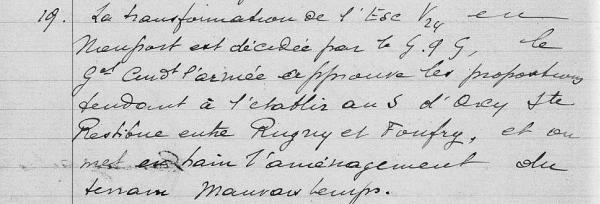 19. La transformation de l'Esc 1/24 en
Nouport est décidée par le G.Q.G, le
Gal Cmdt l'armée approuve les propositions
tendant à l'établir au S d'Orcy Ste
Restitue entre Rugny et Foufry, et on
met en train l'aménagement du
terrain Mauvais temps.